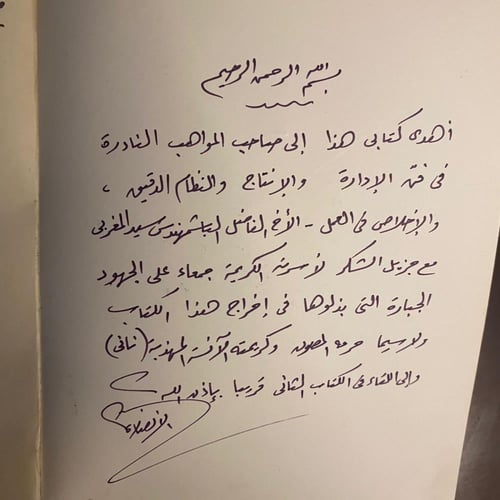 بسم الله الرحمن الرحيم
أهدى كتابى هذا إلى صاحب المواهب النادرة
فى فن الإدارة والإنتاج والنظام الدقيق ،
والإخلاص فى العمل - الأخ الفاضل الباشمهندس سيد المغربى
مع جزيل الشكر لأسرته الكريمة جمعاء على الجهود
الجبارة التى بذلوها فى إخراج هذا الكتاب
ولاسيما حرمه المصون وكريمته الآنسة المهذبة (نانى)
وإلى اللقاء فى الكتاب الثانى قريبا بإذن الله